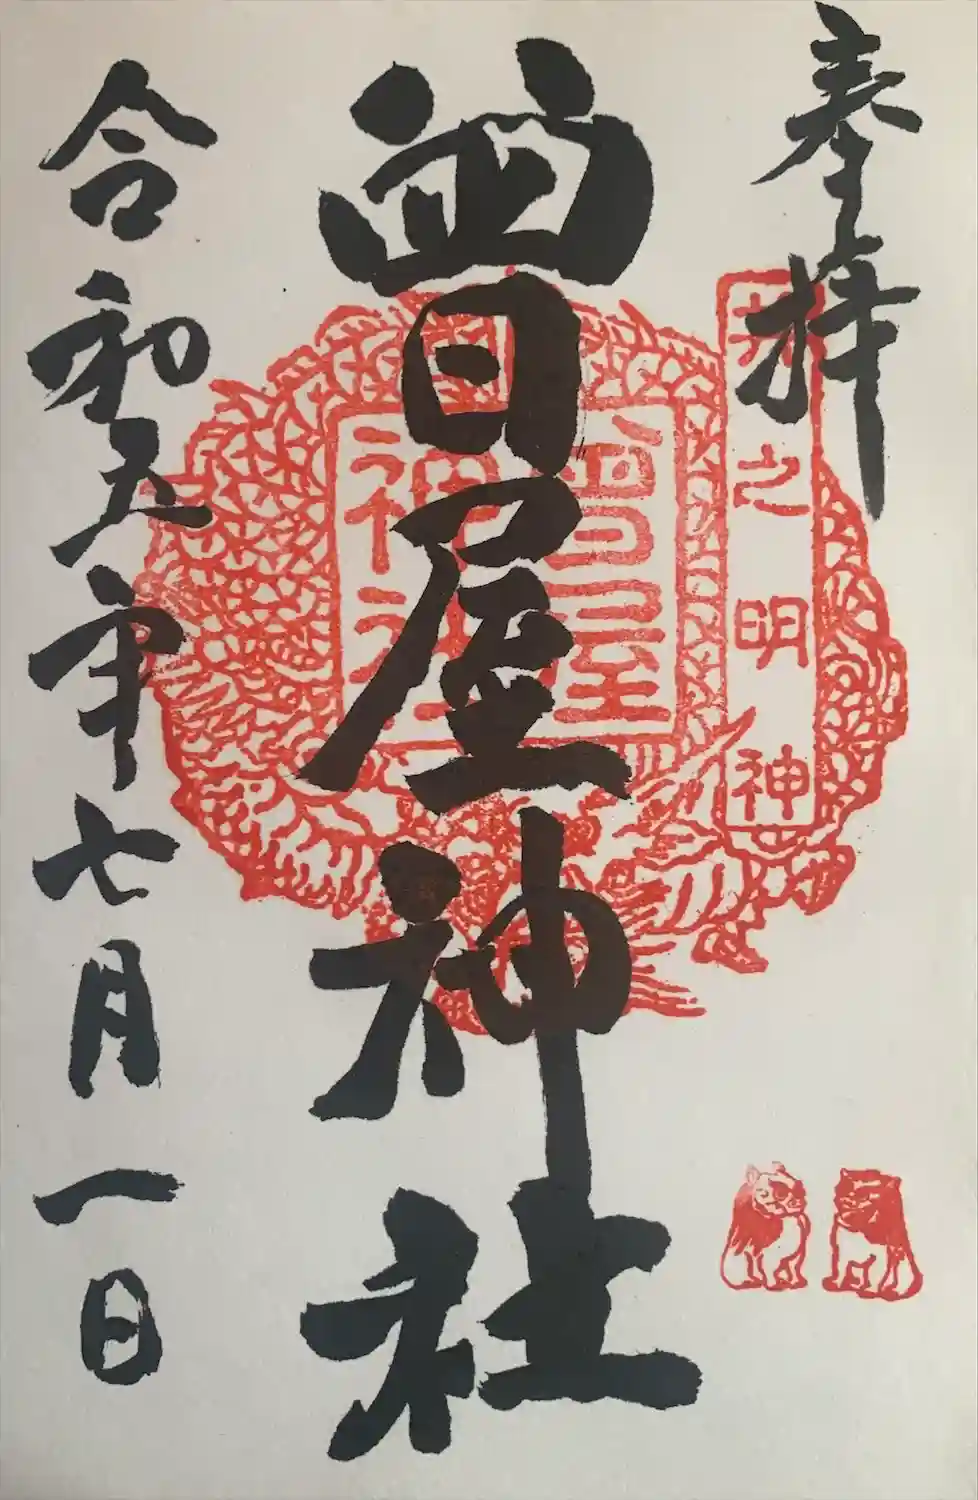 奉拝
曽之明神
曽日屋神社
曽屋神社
令和五年七月一日